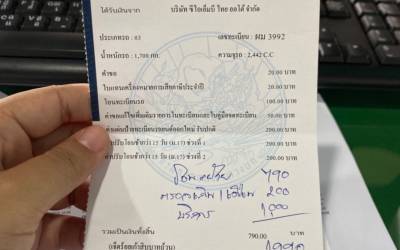 ได้รับเงินจาก บริษัท ซีไอเอ็มบี ไทย ออโต้ จำกัด
ประเภทรถ : 03 เลขทะเบียน : ผม 3992
น้ำหนักรถ : 1,700 กก. ความจุรถ : 2,442 C.C
ค่าขอ 20.00 บาท
ใบแทนเครื่องหมายการเสียภาษีประจำปี 20.00 บาท
โอนทะเบียนรถ 100.00 บาท
ค่าขอแก้ไขเพิ่มเติมรายการในทะเบียนและใบคู่มือจดทะเบียน 50.00 บาท
ค่าแผ่นป้ายทะเบียนรถยนต์ออกใหม่ รับปกติ 200.00 บาท
ค่าปรับโอนช้ากว่า 15 วัน (ม.17) ช่วงที่ 1 200.00 บาท
ค่าปรับโอนช้ากว่า 15 วัน (ม.17) ช่วงที่ 2 200.00 บาท
790
200
บริการ 1,000
รวมเป็นเงินทั้งสิ้น 790.00 บาท
(เจ็ดร้อยเก้าสิบบาทถ้วน) 1990